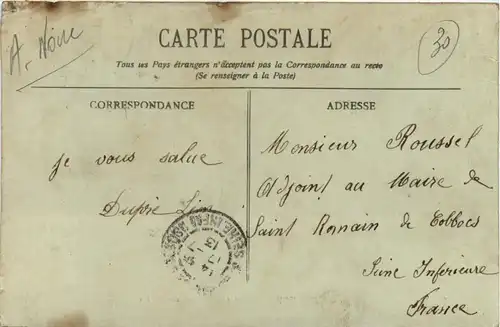 A. Noire
30
CARTE POSTALE
Tous les Pays étrangers n'acceptent pas la Correspondance au recto
(Se renseigner à la Poste)
CORRESPONDANCE
je vous salue
Dupré
ADRESSE
Monsieur Roussel
Adjoint au Maire de
Saint Romain de Colbocs
Seine Inferieure
France